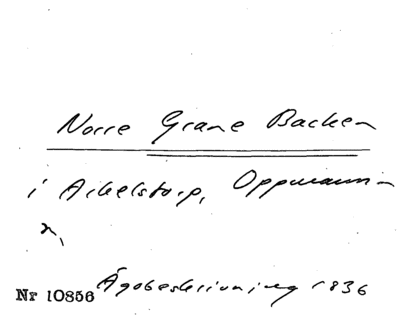 Norre Grane Backen
i Arkelstorp, Oppmanna
n,
Nr 10856 Ägobeskrivning 1836